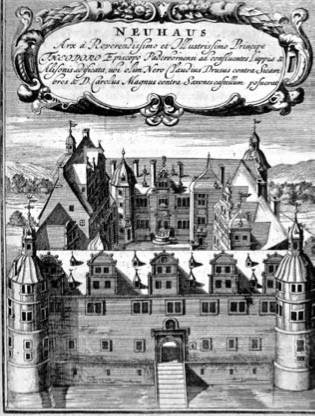 NEUHAUS
Arx à Reverendissimo et Illustrissimo Principe
THEODORO Episcopo Paderbornensi ad confluentes Luppiæ &
Alisonis ædificata, ubi olim Nero Claudius Drusus contra Sicam
bros & D. Carolus Magnus contra Saxones castellum posuerat